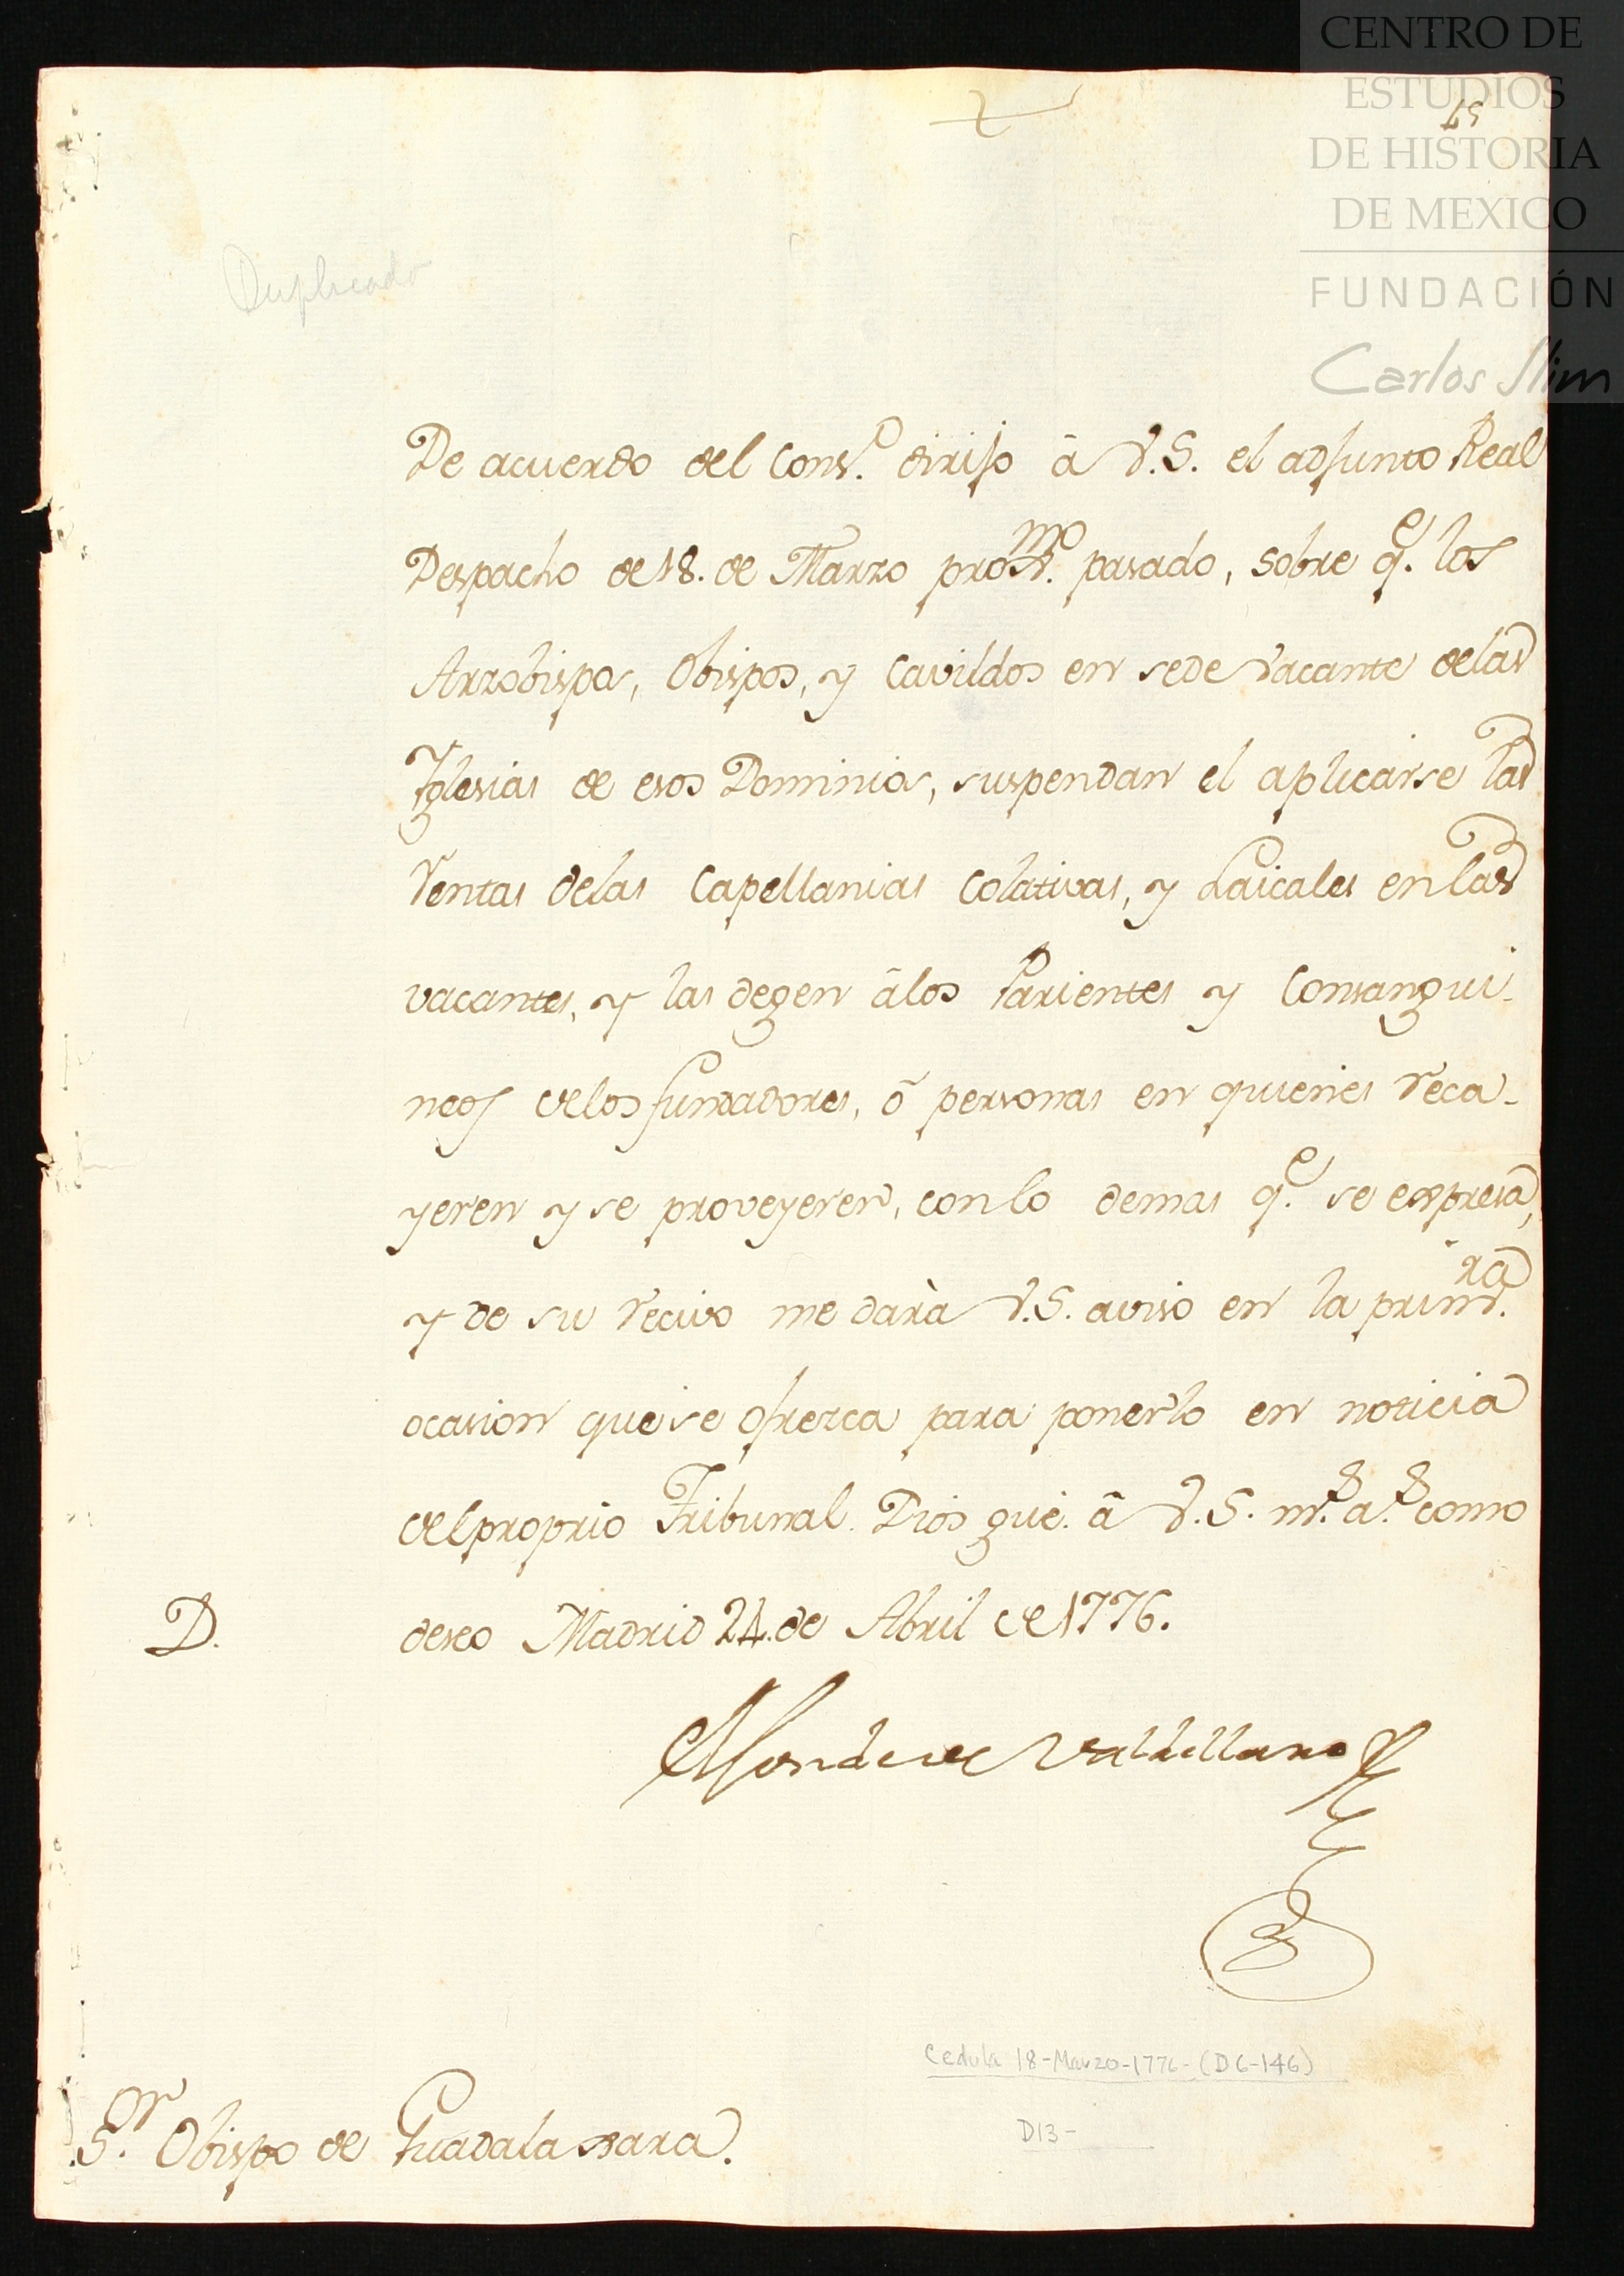 CENTRO DE
ESTUDIOS
DE HISTORIA
DE MEXICO
FUNDACIÓN
Carlos Slim
Duplicado
De acuerdo del Cons.º dirijo â V.S. el adjunto Real
Despacho de 18. de Marzo prox.mo pasado, sobre q.e los
Arzobispos, Obispos, y Cavildos en sede vacante delas
Yglesias de esos Dominios, suspendan el aplicarse las
rentas delas Capellanias Colativas, y Laicales en las
vacantes, y las degen âlos Parientes y Consangui-
neos delos fundadores, ô personas en quienes reca-
yeren y se proveyeren, con lo demas q.e se expresa,
y de su recivo me darà V.S. aviso en la prim.ra
ocasion que se ofrezca para ponerlo en noticia
del proprio Tribunal. Dios gue. â V.S. m.s a.s como
D.
deseo Madrid 24. de Abril de 1776.
S.or Obispo de Guadalaxara.
Cedula 18-Marzo-1776-(D6-146)
D13-